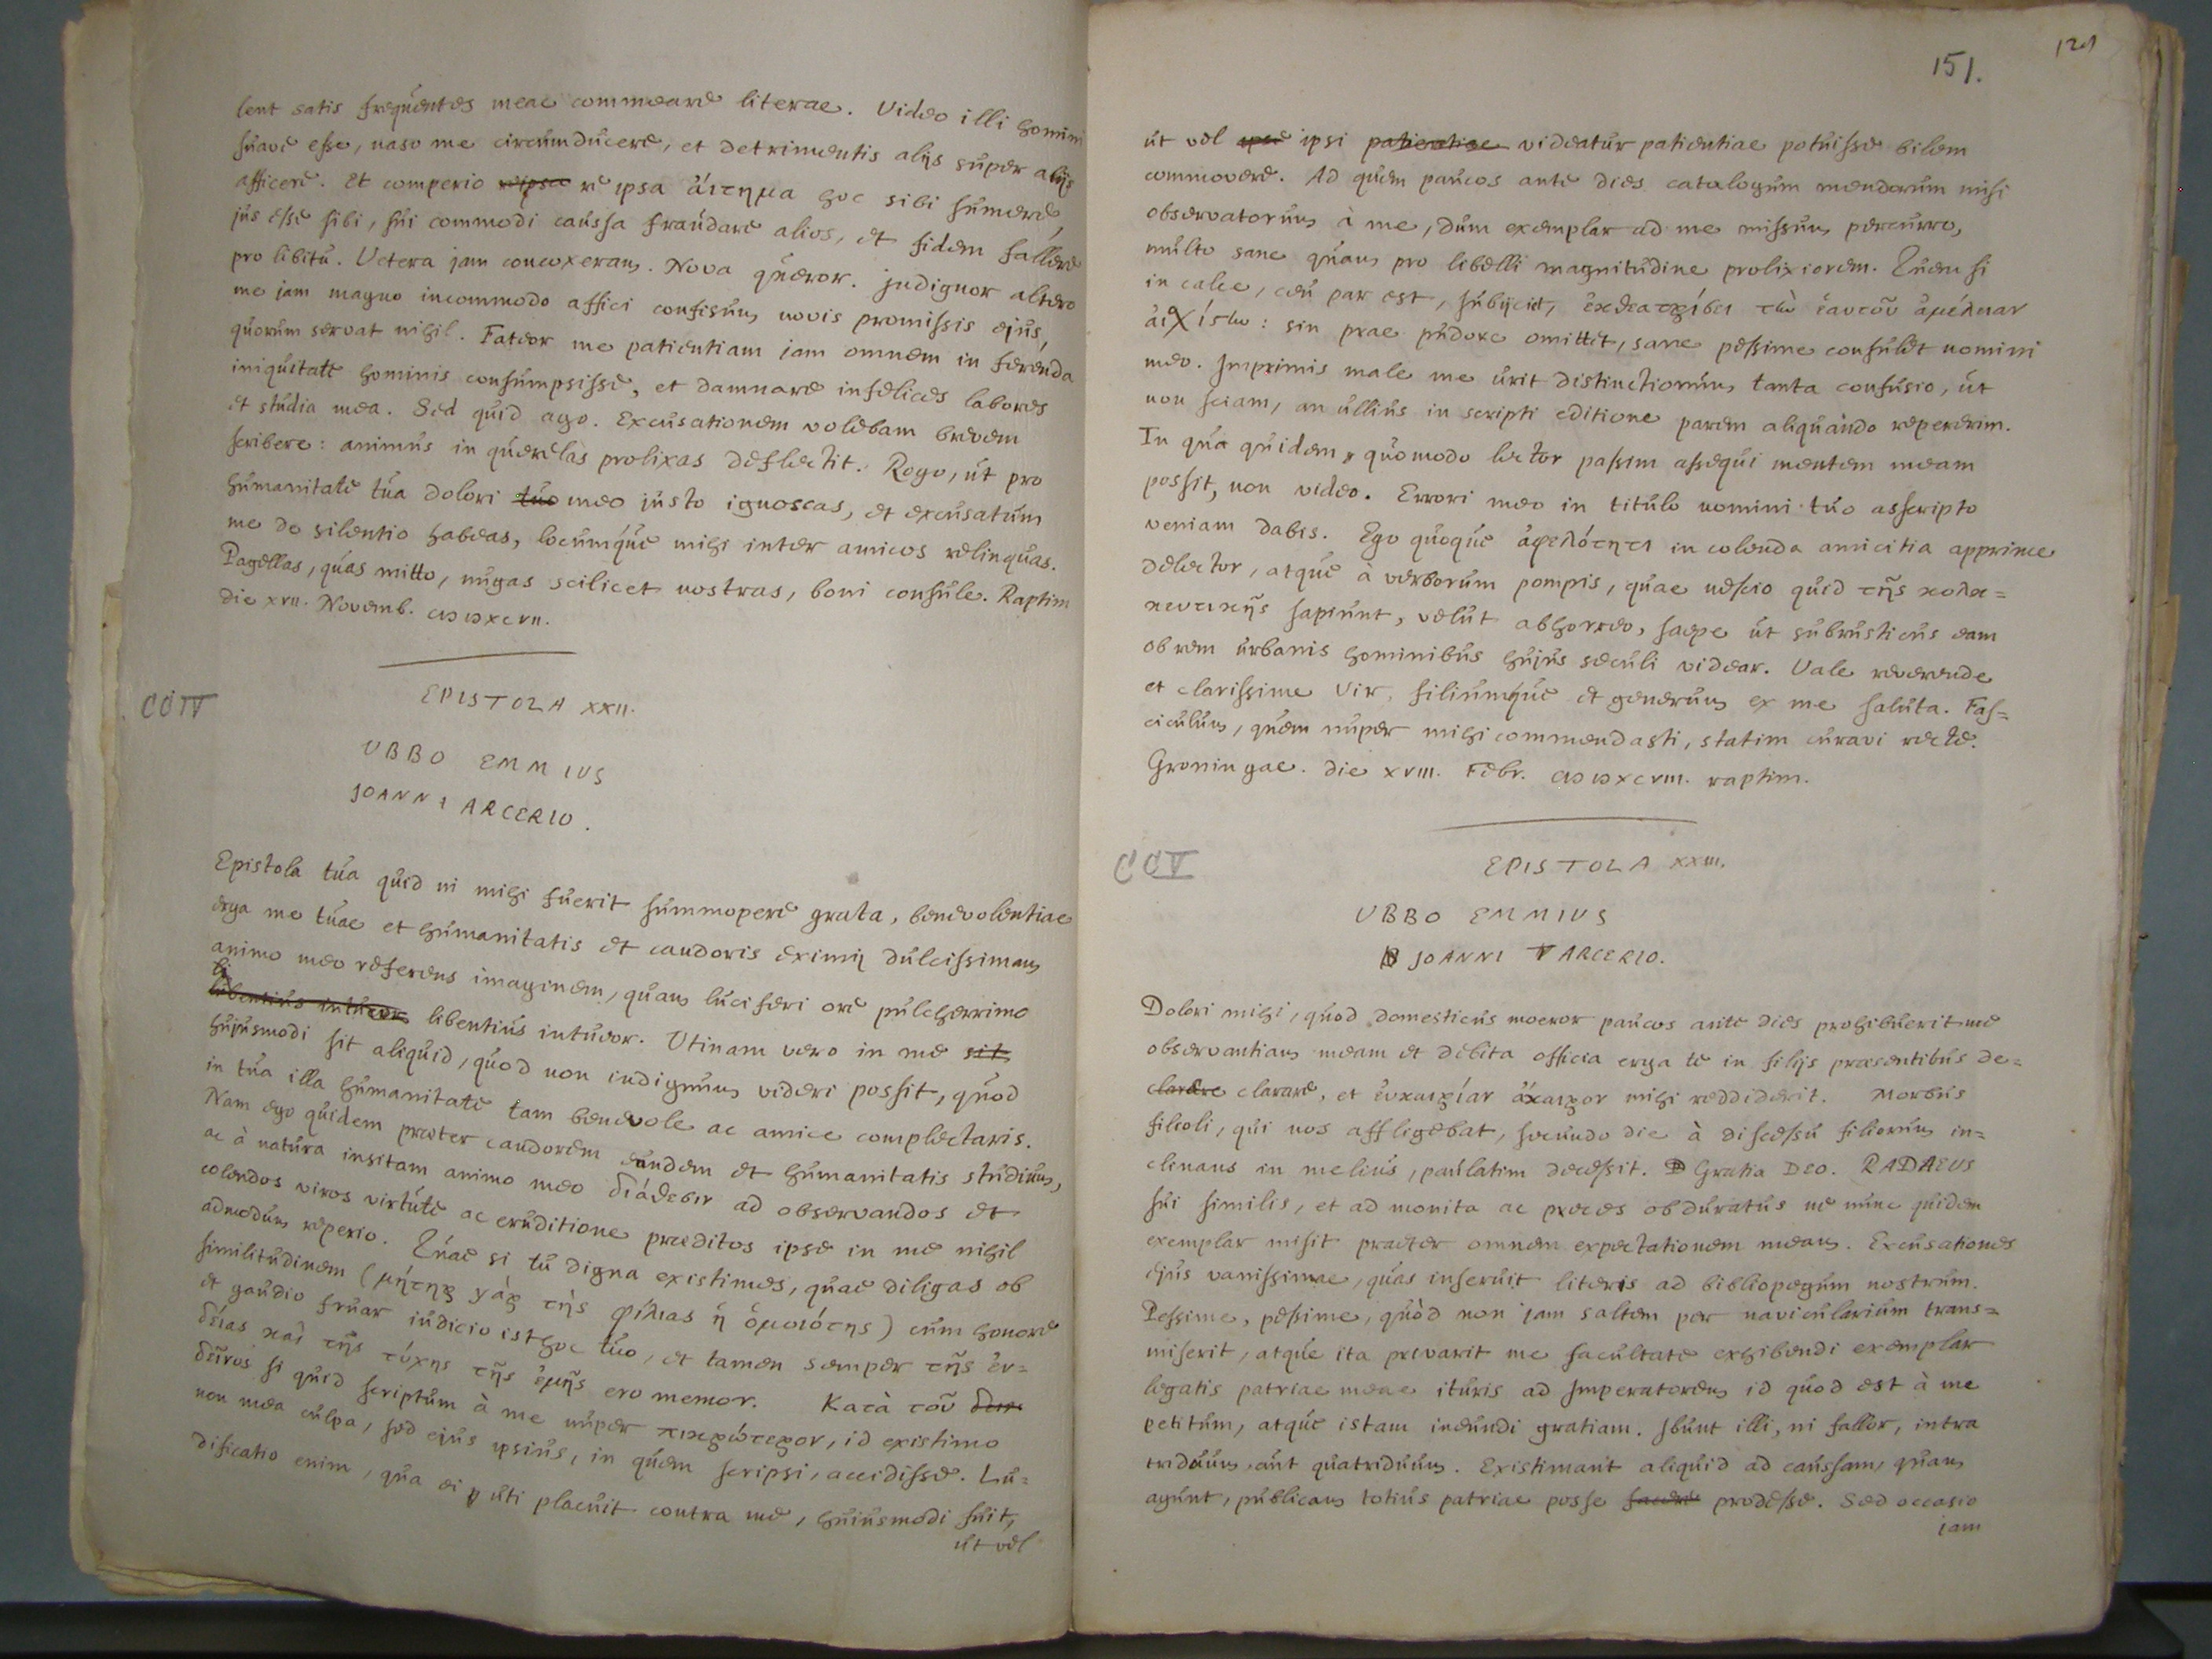 lent satis frequentes meae commeare literae. Video illi homini
suave esse, naso me circumducere, et detrimentis alijs super alijs
afficere. Et comperio re ipsa ἄιτημα hoc sibi sumere,
jus esse sibi, sui commodi caussa fraudare alios, et fidem fallere
pro libitu. Vetera jam concoxeram. Nova queror. Indignor altero
me jam magno incommodo affici confisum novis promissis ejus,
quorum servat nihil. Fateor me patientiam jam omnem in ferenda
iniquitate hominis consumpsisse, et damnare infelices labores
et studia mea. Sed quid ago. Excusationem volebam brevem
scribere: animus in querelas prolixas deflectit. Rogo, ut pro
humanitate tua dolori tuo meo justo ignoscas, et excusatum
me de silentio habeas, locumque mihi inter amicos relinquas.
Pagellas, quas mitto, nugas scilicet nostras, boni consule. Raptim
die XVII. Novemb. CIↃ IↃ XCVII.
CCIV
EPISTOLA XXII.
UBBO EMMIUS
JOANNI ARCERIO.
Epistola tua quid ni mihi fuerit summopere grata, benevolentiae
erga me tuae et humanitatis et candoris eximij dulcissimam
animo meo referens imaginem, quam luciferi ore pulcherrimo
libentius intueor libentius intueor. Utinam vero in me sit
hujusmodi sit aliquid, quod non indignum videri possit, quod
in tua illa humanitate tam benevole ac amice complectaris.
Nam ego quidem praeter candorem eundem et humanitatis studium,
ac à natura insitam animo meo διάθεσιν ad observandos et
colendos viros virtute ac eruditione praeditos ipse in me nihil
admodum reperio. Quae si tu digna existimes, quae diligas ob
similitudinem (μήτηρ γὰρ τῆς φίλιας ἡ ὁμοιότης) cum honore
et gaudio fruar iudicio isthoc tuo, et tamen semper τῆς ἐν=
δείας καὶ τῆς τύχης τῆς ἐμῆς ero memor. Κατὰ τοῦ
δεῖνος si quid scriptum à me nuper πικρώτερον, id existimo
non mea culpa, sed ejus ipsius, in quem scripsi, accidisse. Lu=
dificatio enim, qua ei uti placuit contra me, huiusmodi fuit,
ut vel
151.
121
ut vel ipse ipsi patientiae videatur patientiae potuisse bilem
commovere. Ad quem paucos ante dies catalogum mendorum misi
observatorum à me, dum exemplar ad me missum percurro,
multo sane quam pro libelli magnitudine prolixiorem. Quem si
in calce, ceu par est, subijciet, ἐκθεατρίσει τὴν ἑαυτοῦ ἀμέλειαν
αἰχίστην: sin prae pudore omittet, sane pessime consulet nomini
meo. Imprimis male me urit distinctionum tanta confusio, ut
non sciam, an ullius in scripti editione parem aliquando repererim.
In qua quidem, quomodo lector passim assequi mentem meam
possit, non video. Errori meo in titulo nomini tuo asscripto
veniam dabis. Ego quoque ἀφελότητι in colenda amicitia apprime
delector, atque à verborum pompis, quae nescio quid τῆς κολα=
κευτικῆς sapiunt, velut abhorreo, saepe ut subrusticus eam
ob rem urbanis hominibus hujus seculi videar. Vale reverende
et clarissime Vir, filiumque et generum ex me saluta. Fas=
ciculum, quem nuper mihi commendasti, statim curavi recte.
Groningae. die XVIII. Febr. CIↃ IↃ XCVIII. raptim.
CCV
EPISTOLA XXIII.
UBBO EMMIUS
JOANNI ARCERIO.
Dolori mihi, quod domesticus moeror paucos ante dies prohibuerit me
observantiam meam et debita officia erga te in filijs praesentibus de=
clarare clarare, et ἐυκαιρίαν ἄκαιρον mihi reddiderit. Morbus
filioli, qui nos affligebat, secundo die à discessu filiorum in=
clinans in melius, paulatim decessit. Gratia DEO. RADAEUS
sui similis, et ad monita ac preces obduratus ne nunc quidem
exemplar misit praeter omnem expectationem meam. Excusationes
ejus vanissimae, quas inseruit literis ad bibliopegum nostrum.
Pessime, pessime, quòd non jam saltem per navicularium trans=
miserit, atque ita privarit me facultate exhibendi exemplar
legatis patriae meae ituris ad Imperatorem id quod est à me
petitum, atque istam ineundi gratiam. Ibunt illi, ni fallor, intra
triduum, aut quatriduum. Existimant aliquid ad caussam, quam
agunt, publicam totius patriae posse facere prodesse. Sed occasio
jam